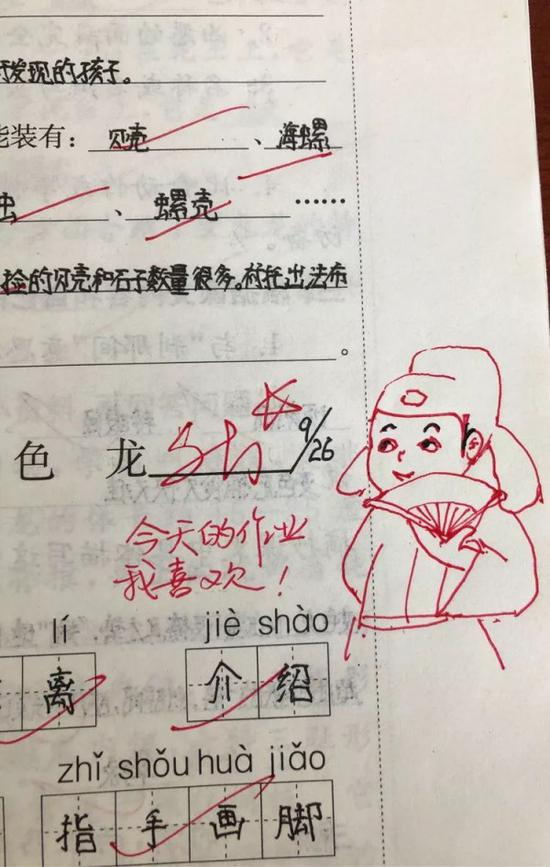 发现的孩子。
能装有：贝壳、海螺
虫、螺壳……
捡的贝壳和石子数量很多。衬托出法布
。
色 龙 9/26
今天的作业
我喜欢！
lí jiè shào
离 介绍
zhǐ shǒu huà jiǎo
指手画脚